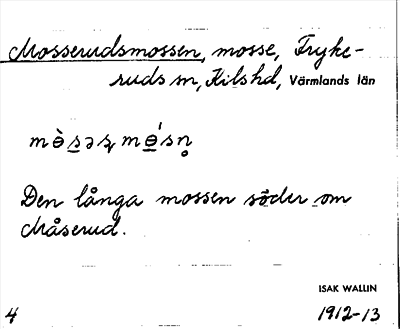 Mosserudsmossen, mosse, Fryke-
ruds sn, Kils hd, Värmlands län
Den långa mossen söder om
Måserud.
ISAK WALLIN
4 1912-13